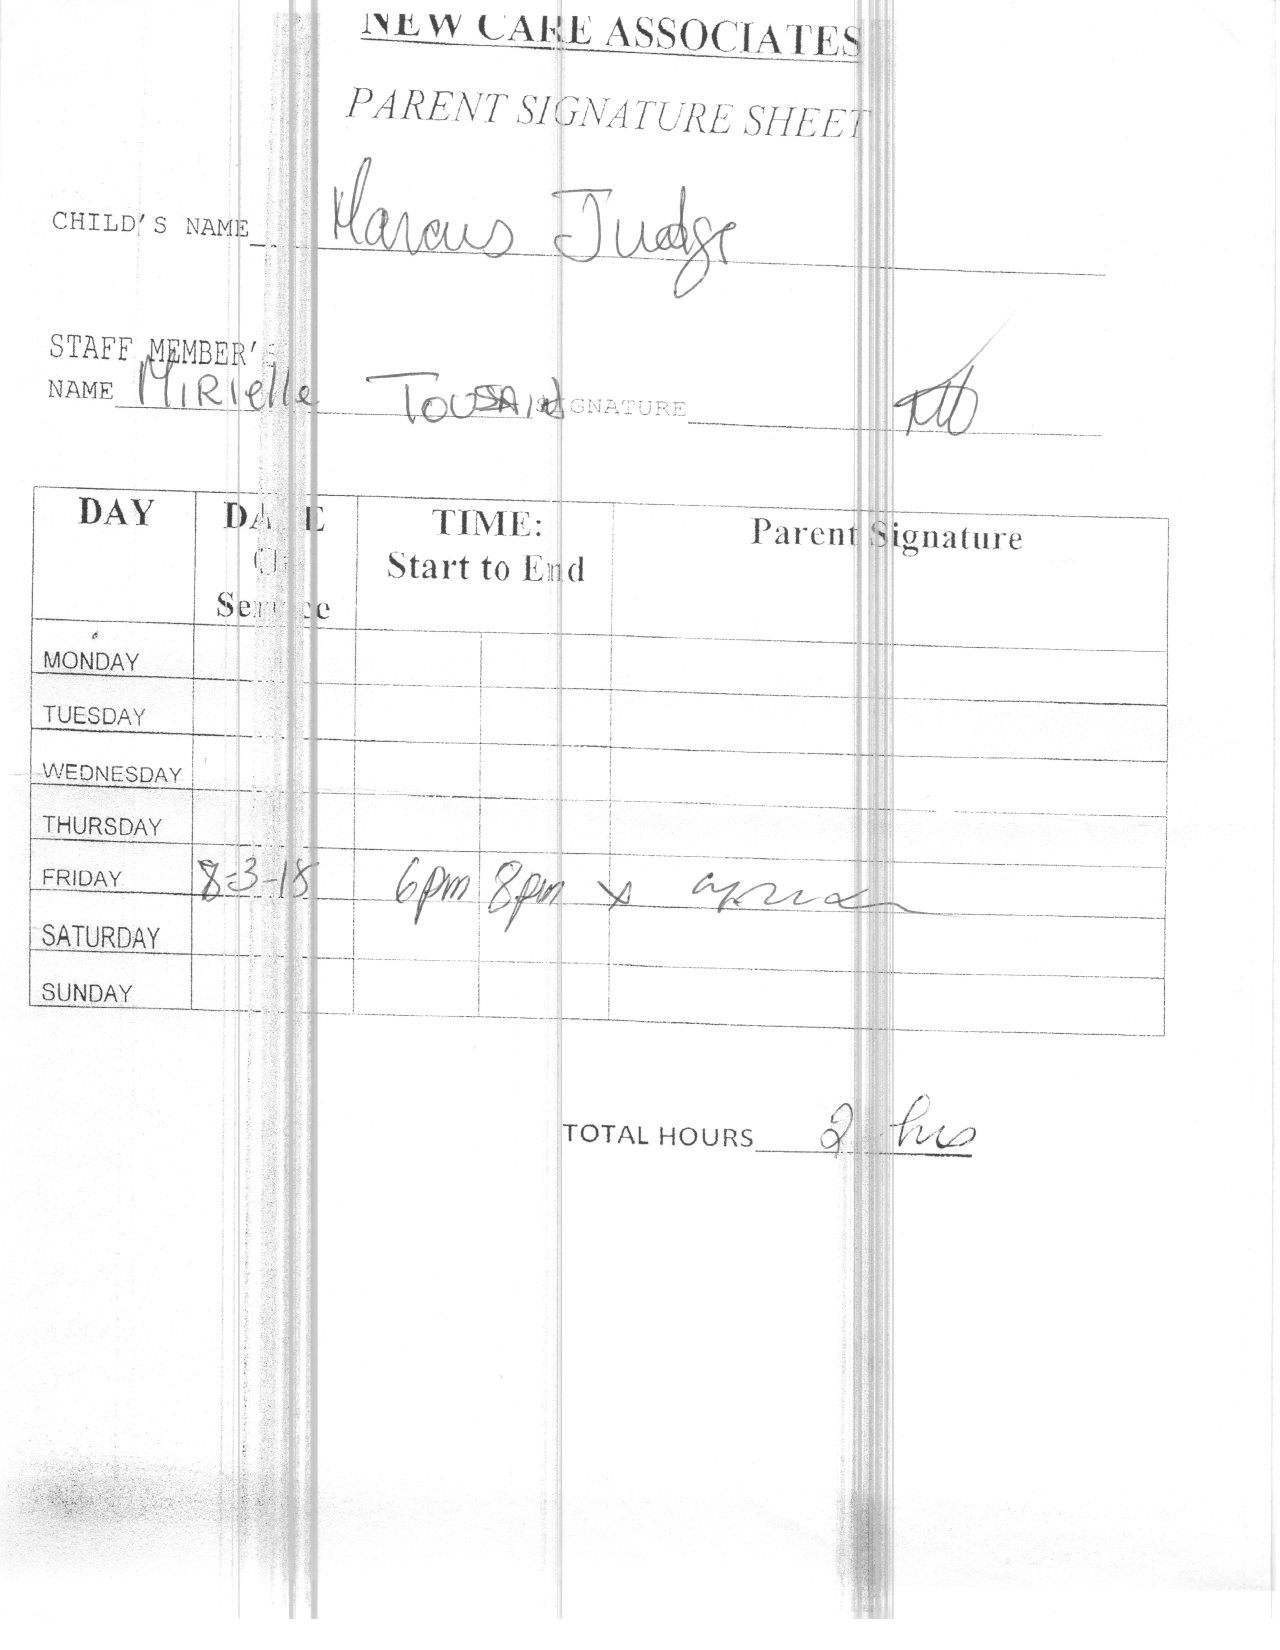 NEW CARE ASSOCIATES
PARENT SIGNATURE SHEET
CHILD'S NAME Marcus Judge
STAFF MEMBER'S
NAME Mirielle SIGNATURE
DAY DATE TIME: Parent Signature
Of Start to End
Service
MONDAY
TUESDAY
WEDNESDAY
THURSDAY
FRIDAY 8-3-18 6pm 8pm X
SATURDAY
SUNDAY
TOTAL HOURS 2 hrs